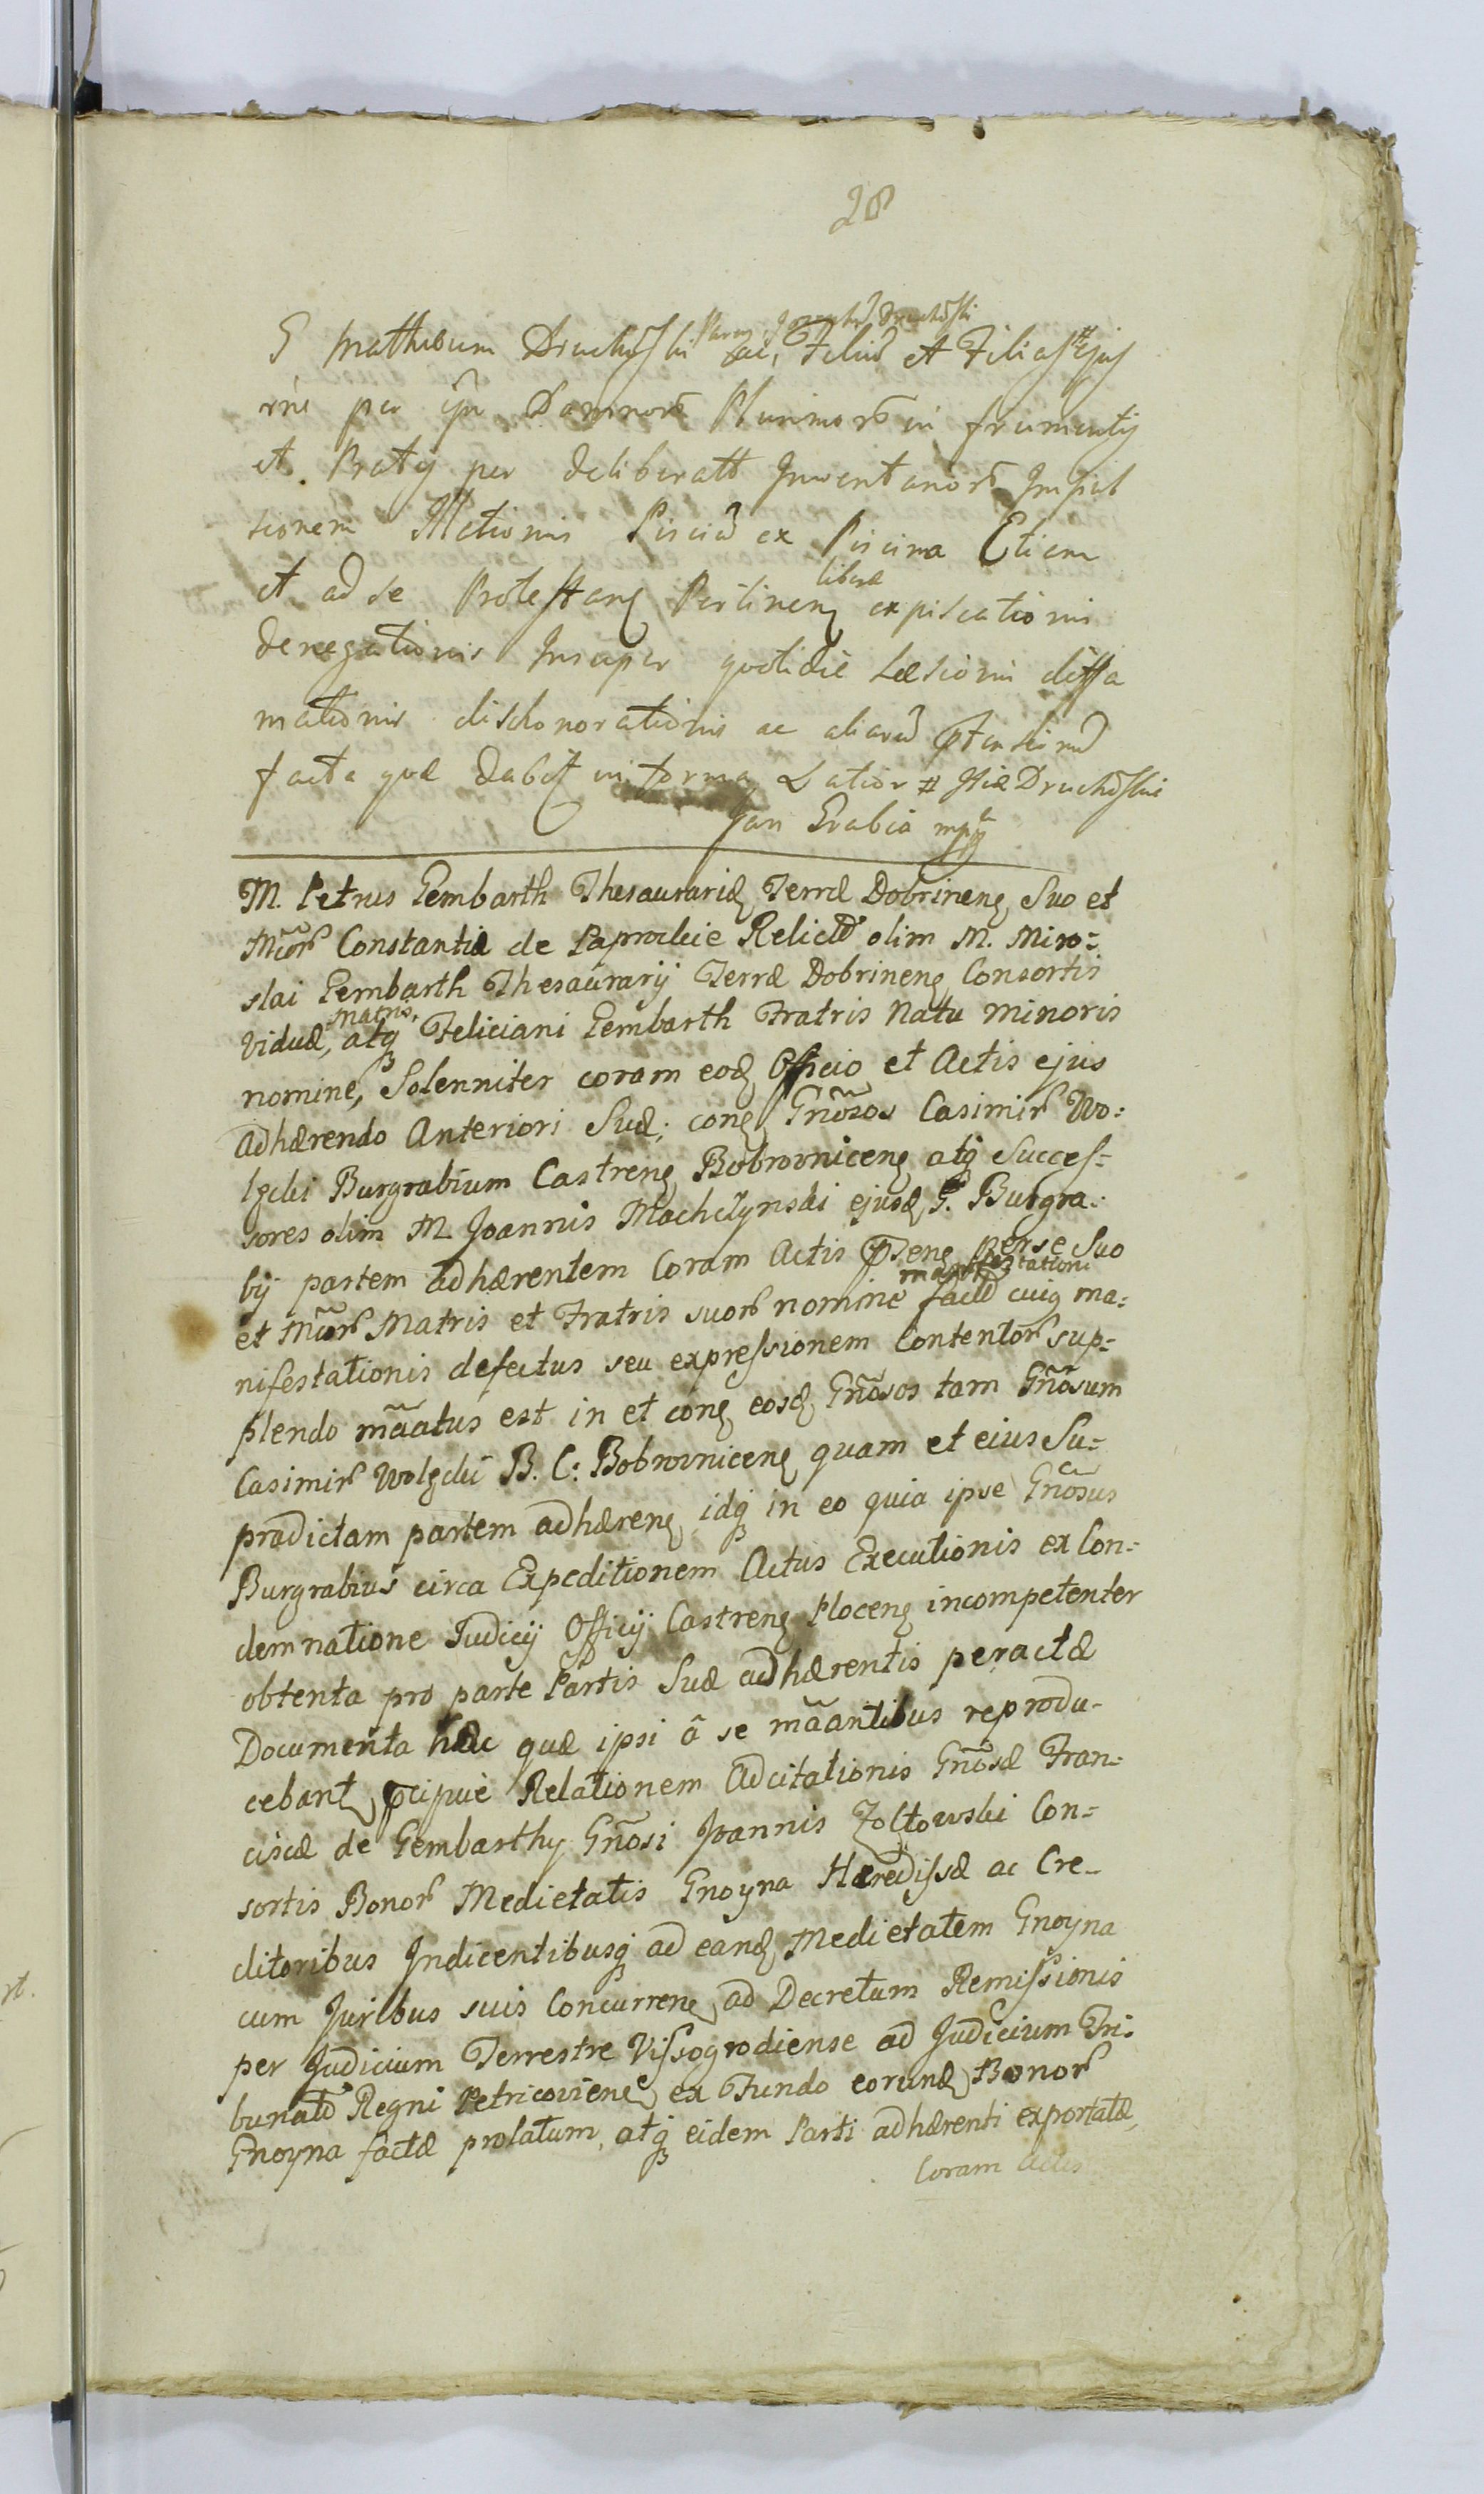 28
G Mathæum Druchoski ac Filiũ et Filias # ejus
rńe per
et Pratis per deliberatt Inventarior̃ Impul
sionem Illationis Pisciũ ex Piscina Etiam
et ad se Protestanẽ Pertinenẽ liberæ expiscationis
denegationis Insuper quotidie Læsionis diffa
mationis dishonorationis ac aliarũ
facta quæ dabit in forma Latior # Druchoskie
Jan Grabia mpa
M. Petrus Gembarth Thesaurariq Terræ Dobrinenẽ, Suo et
Mcor̃ Constantiæ de Paprockie Relictæ olim M. Miro:
slai Gembarth Thesaurarij Terræ Dobrinenẽ Consortis
Viduæ, Matris, atqꝫ Feliciani Gembarth Fratris Natu Minoris
nomine, Solenniter coram eodẽ Officio et Actis ejus
Adhærendo Anteriori Suæ; conẽ Gñosos Casimir̃ Wo:
lgcki Burgrabium Castrenẽ Bobrovnicenẽ atqꝫ Succes:
sores olim M Joannis Machczynski ejusdẽ G. Burgra:
bij partem adhærentem Coram Actis pñtenẽ per se Suo
et Mcor̃ Matris et Fratris suor̃ nomine manifestationi factæ cuiq ma:
nifestationis defectus seu expressionem Contentor̃ sup:
plendo mãatus est in et conẽ eosdẽ Gñosos tam Gñosum
Casimir̃ Wolgcki B. C: Bobrovnicenẽ quam et eius Su:
prædictam partem adhærenẽ idqꝫ in eo quia ipse Gñosus
Burgrabius circa Expeditionem Actus Executionis ex Con:
demnatione Judicij Officij Castrenẽ Plocenẽ incompetenter
obtenta pro parte Partis Suæ adhærentis peractæ
Documenta hæc quæ ipsi â se mãantibus reprodu-
cebantẽ, pꝛcipuè Relationem Adcitationis Gñosæ Fran:
ciscæ de Gembarthy Gñosi Joannis Zołtowski Con:
sortis Bonor̃ Medietatis Gnoyna Hæredissæ ac Cre-
ditoribus Indicentibusqꝫ ad eandẽ Medietatem Gnoyna
cum Juribus suis Concurrenẽ, ad Decretum Remissionis
per Judicium Terrestre Vissogrodiense ad Judicium Tri:
bunalĩ Regni Petricovienẽ ex Fundo eorundẽ Bonor̃
Gnoyna factæ prolatum, atqꝫ eidem Parti adhærenti exportatæ,
Coram Actis